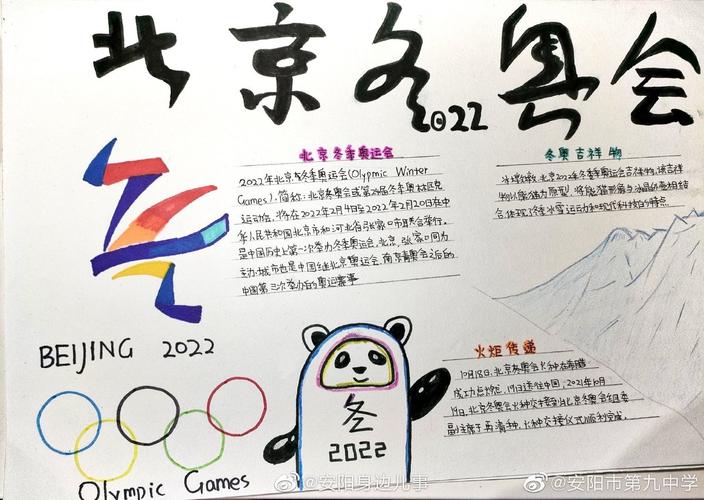 北京冬奥会
2022
北京冬季奥运会
2022年北京冬季奥运会(Olypmic Winter
Games),简称:北京冬奥会或第24届冬季奥林匹克
运动会,将在2022年2月4日至2022年2月20日在中
华人民共和国北京市和河北省张家口市联合举行。
是中国历史上第一次举办冬季奥运会,北京,张家口同为
主办城市也是中国继北京奥运会,南京青奥会之后的
中国第三次举办的奥运赛事
冬奥吉祥物
冰墩墩,北京2022年冬季奥运会吉祥物,该吉祥
物以熊猫为原型,将熊猫形象与冰晶外壳相结
合体现了冬季冰雪运动和现代科技的特点
BEIJING 2022
冬
2022
Olympic Games
火炬传递
10月18日,北京冬奥会火种在希腊
成功点燃,19日送往中国,2021年10月
19日,北京冬奥会火种交接到北京冬奥会组委
副主席于再清种,火种交接仪式顺利完成。
@安阳身边儿事
@安阳市第九中学